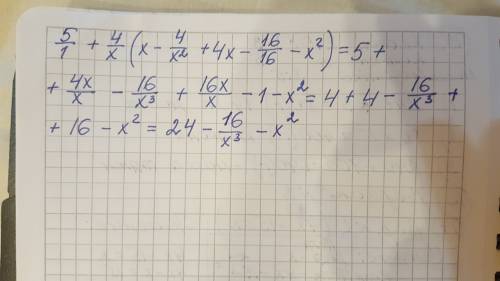 5/1 + 4/x (x - 4/x² + 4x - 16/16 - x²) = 5 +
+ 4x/x - 16/x³ + 16x/x - 1 - x² = 4 + 4 - 16/x³ +
+ 16 - x² = 24 - 16/x³ - x²